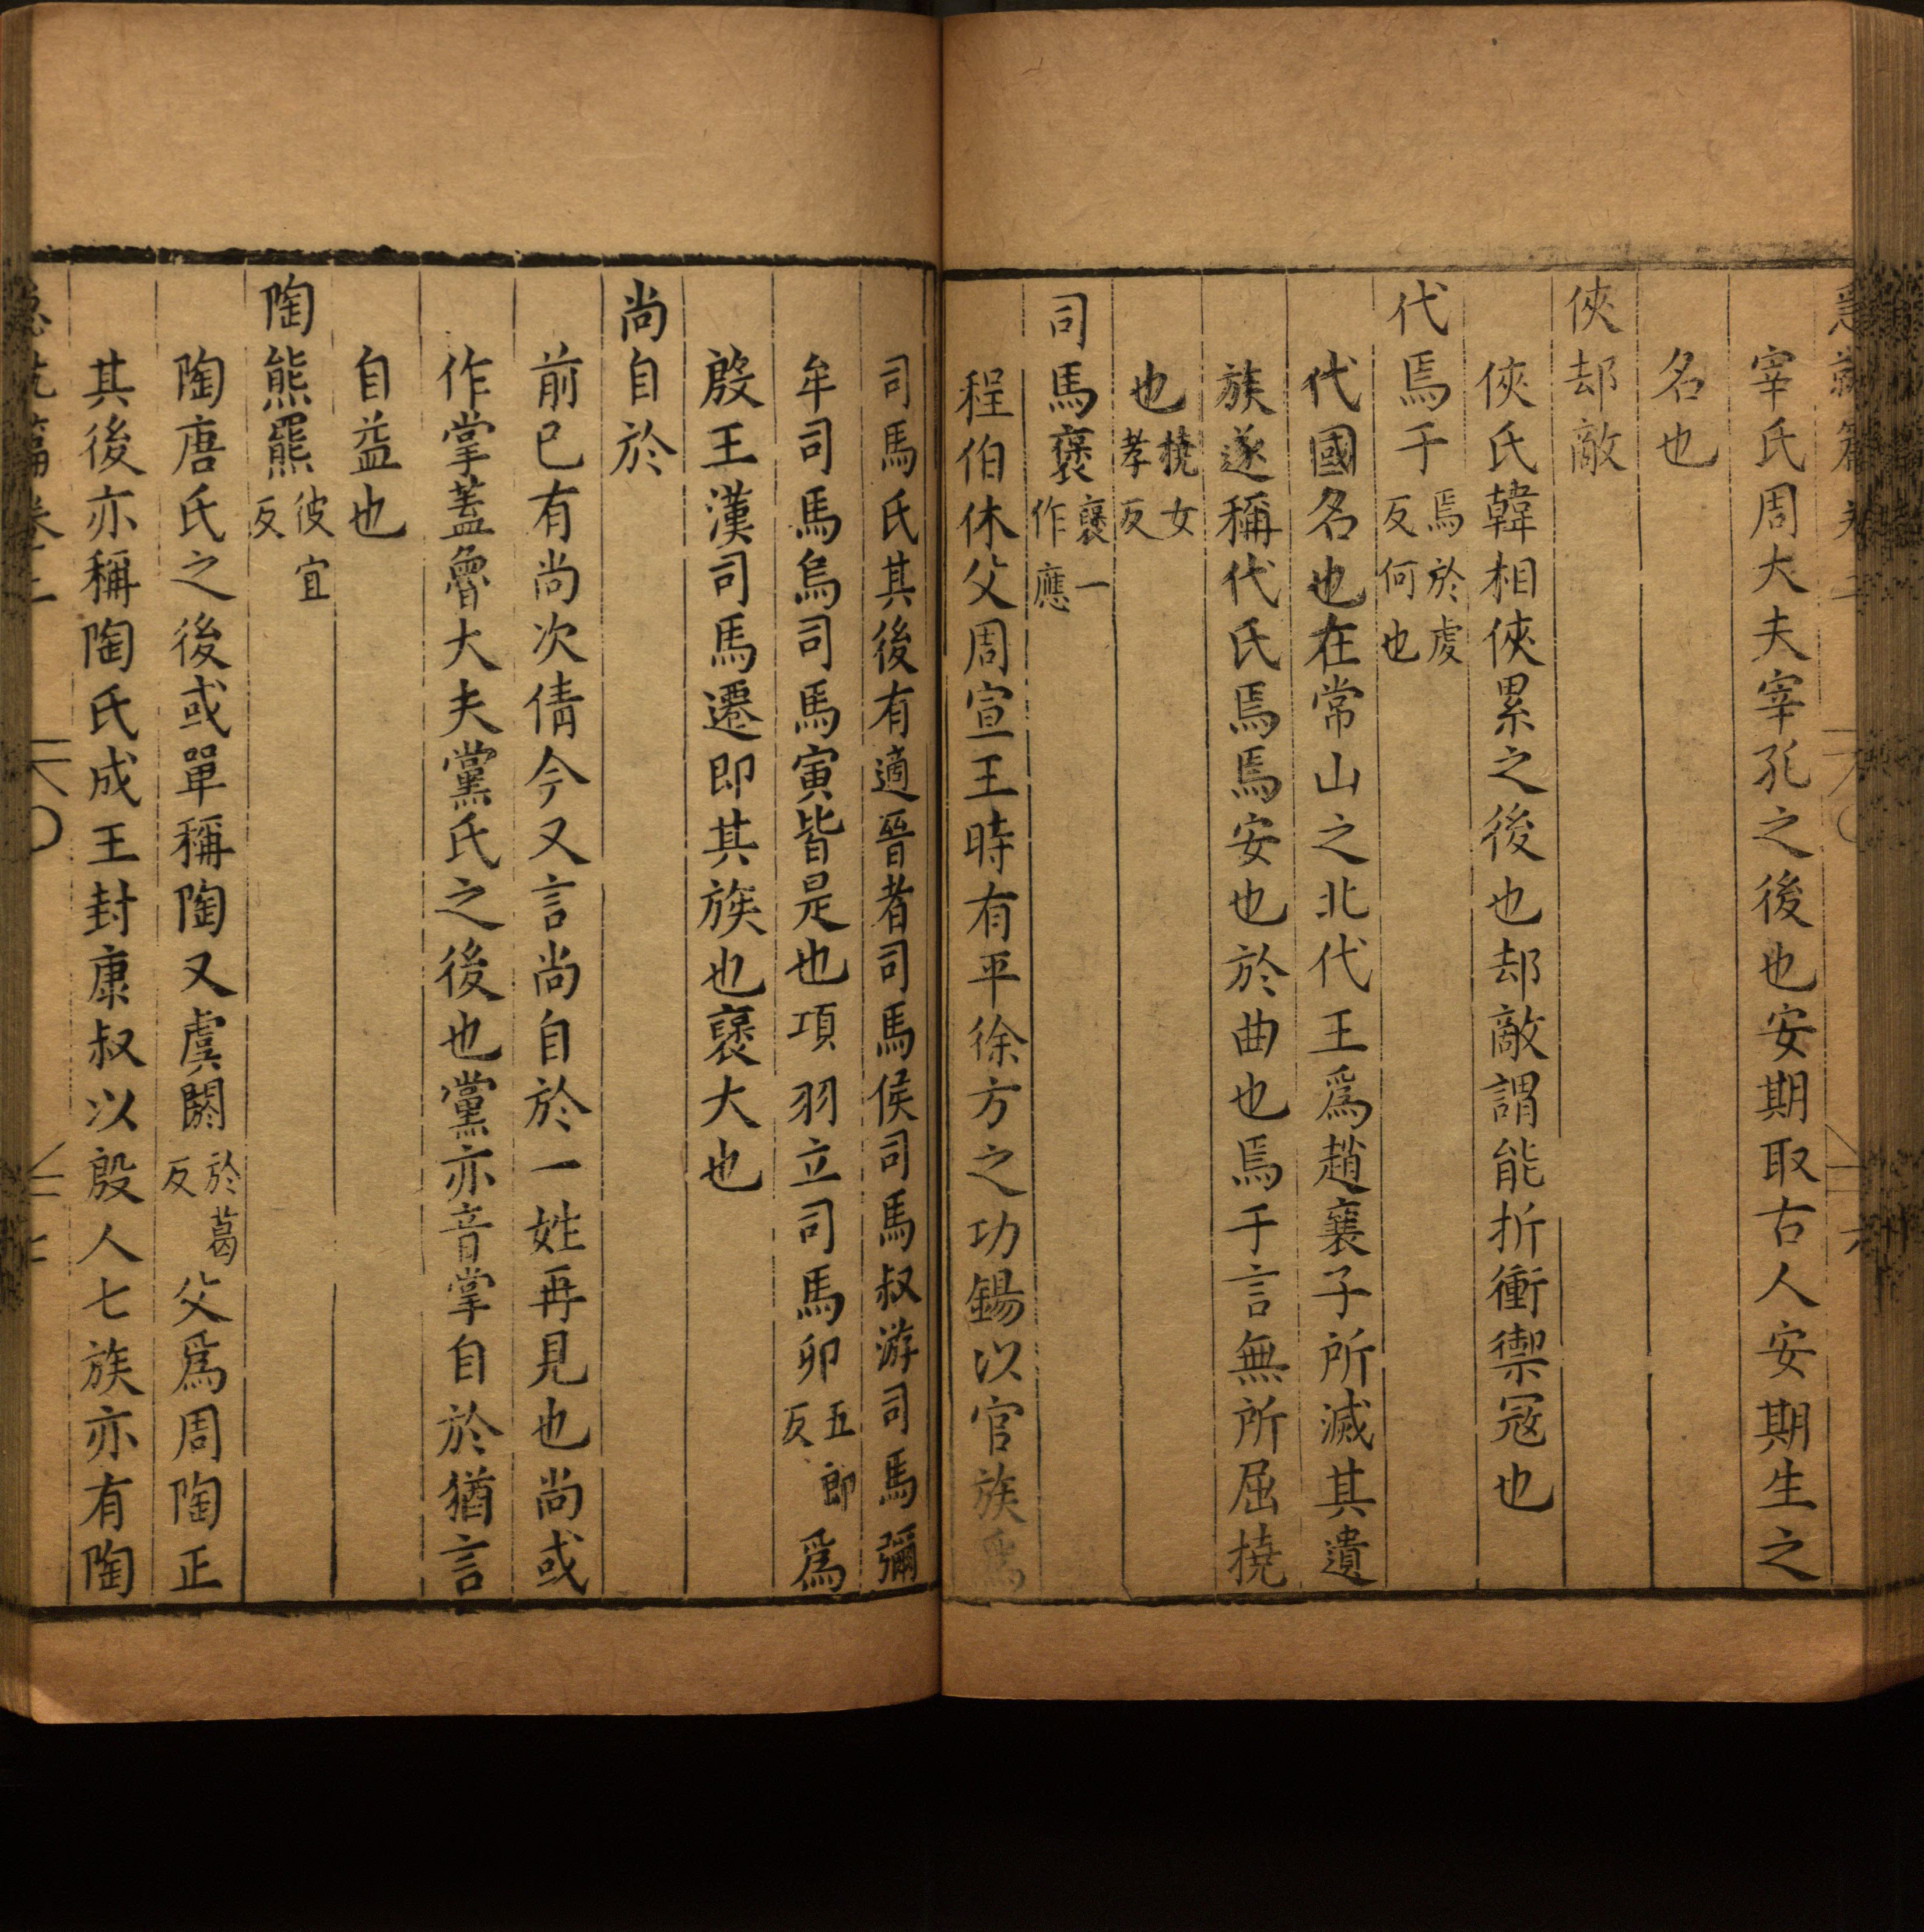 宰氏周大夫宰孔之後也安期取古人安期生之
名也
俠却敵
俠氏韓相俠累之後也却敵謂能折衝禦冦也
代焉于焉於虔反何也
代國名也在常山之北代王爲趙襄子所滅其遺
族遂稱代氏焉焉安也於曲也焉于言無所屈撓
也撓女孝反
司馬襃襃一作應
程伯休父周宣王時有平徐方之功錫以官族爲
司馬氏其後有適晉者司馬侯司馬叔游司馬彌
牟司馬烏司馬寅皆是也項羽立司馬卬五郎反爲
殷王漢司馬遷即其族也襃大也
尚自於
前已有尚次倩今又言尚自於一姓再見也尚或
作掌蓋魯大夫黨氏之後也黨亦音掌自於猶言
自益也
陶熊羆彼宜反
陶唐氏之後或單稱陶又虞閼於葛反父爲周陶正
其後亦稱陶氏成王封康叔以殷人七族亦有陶